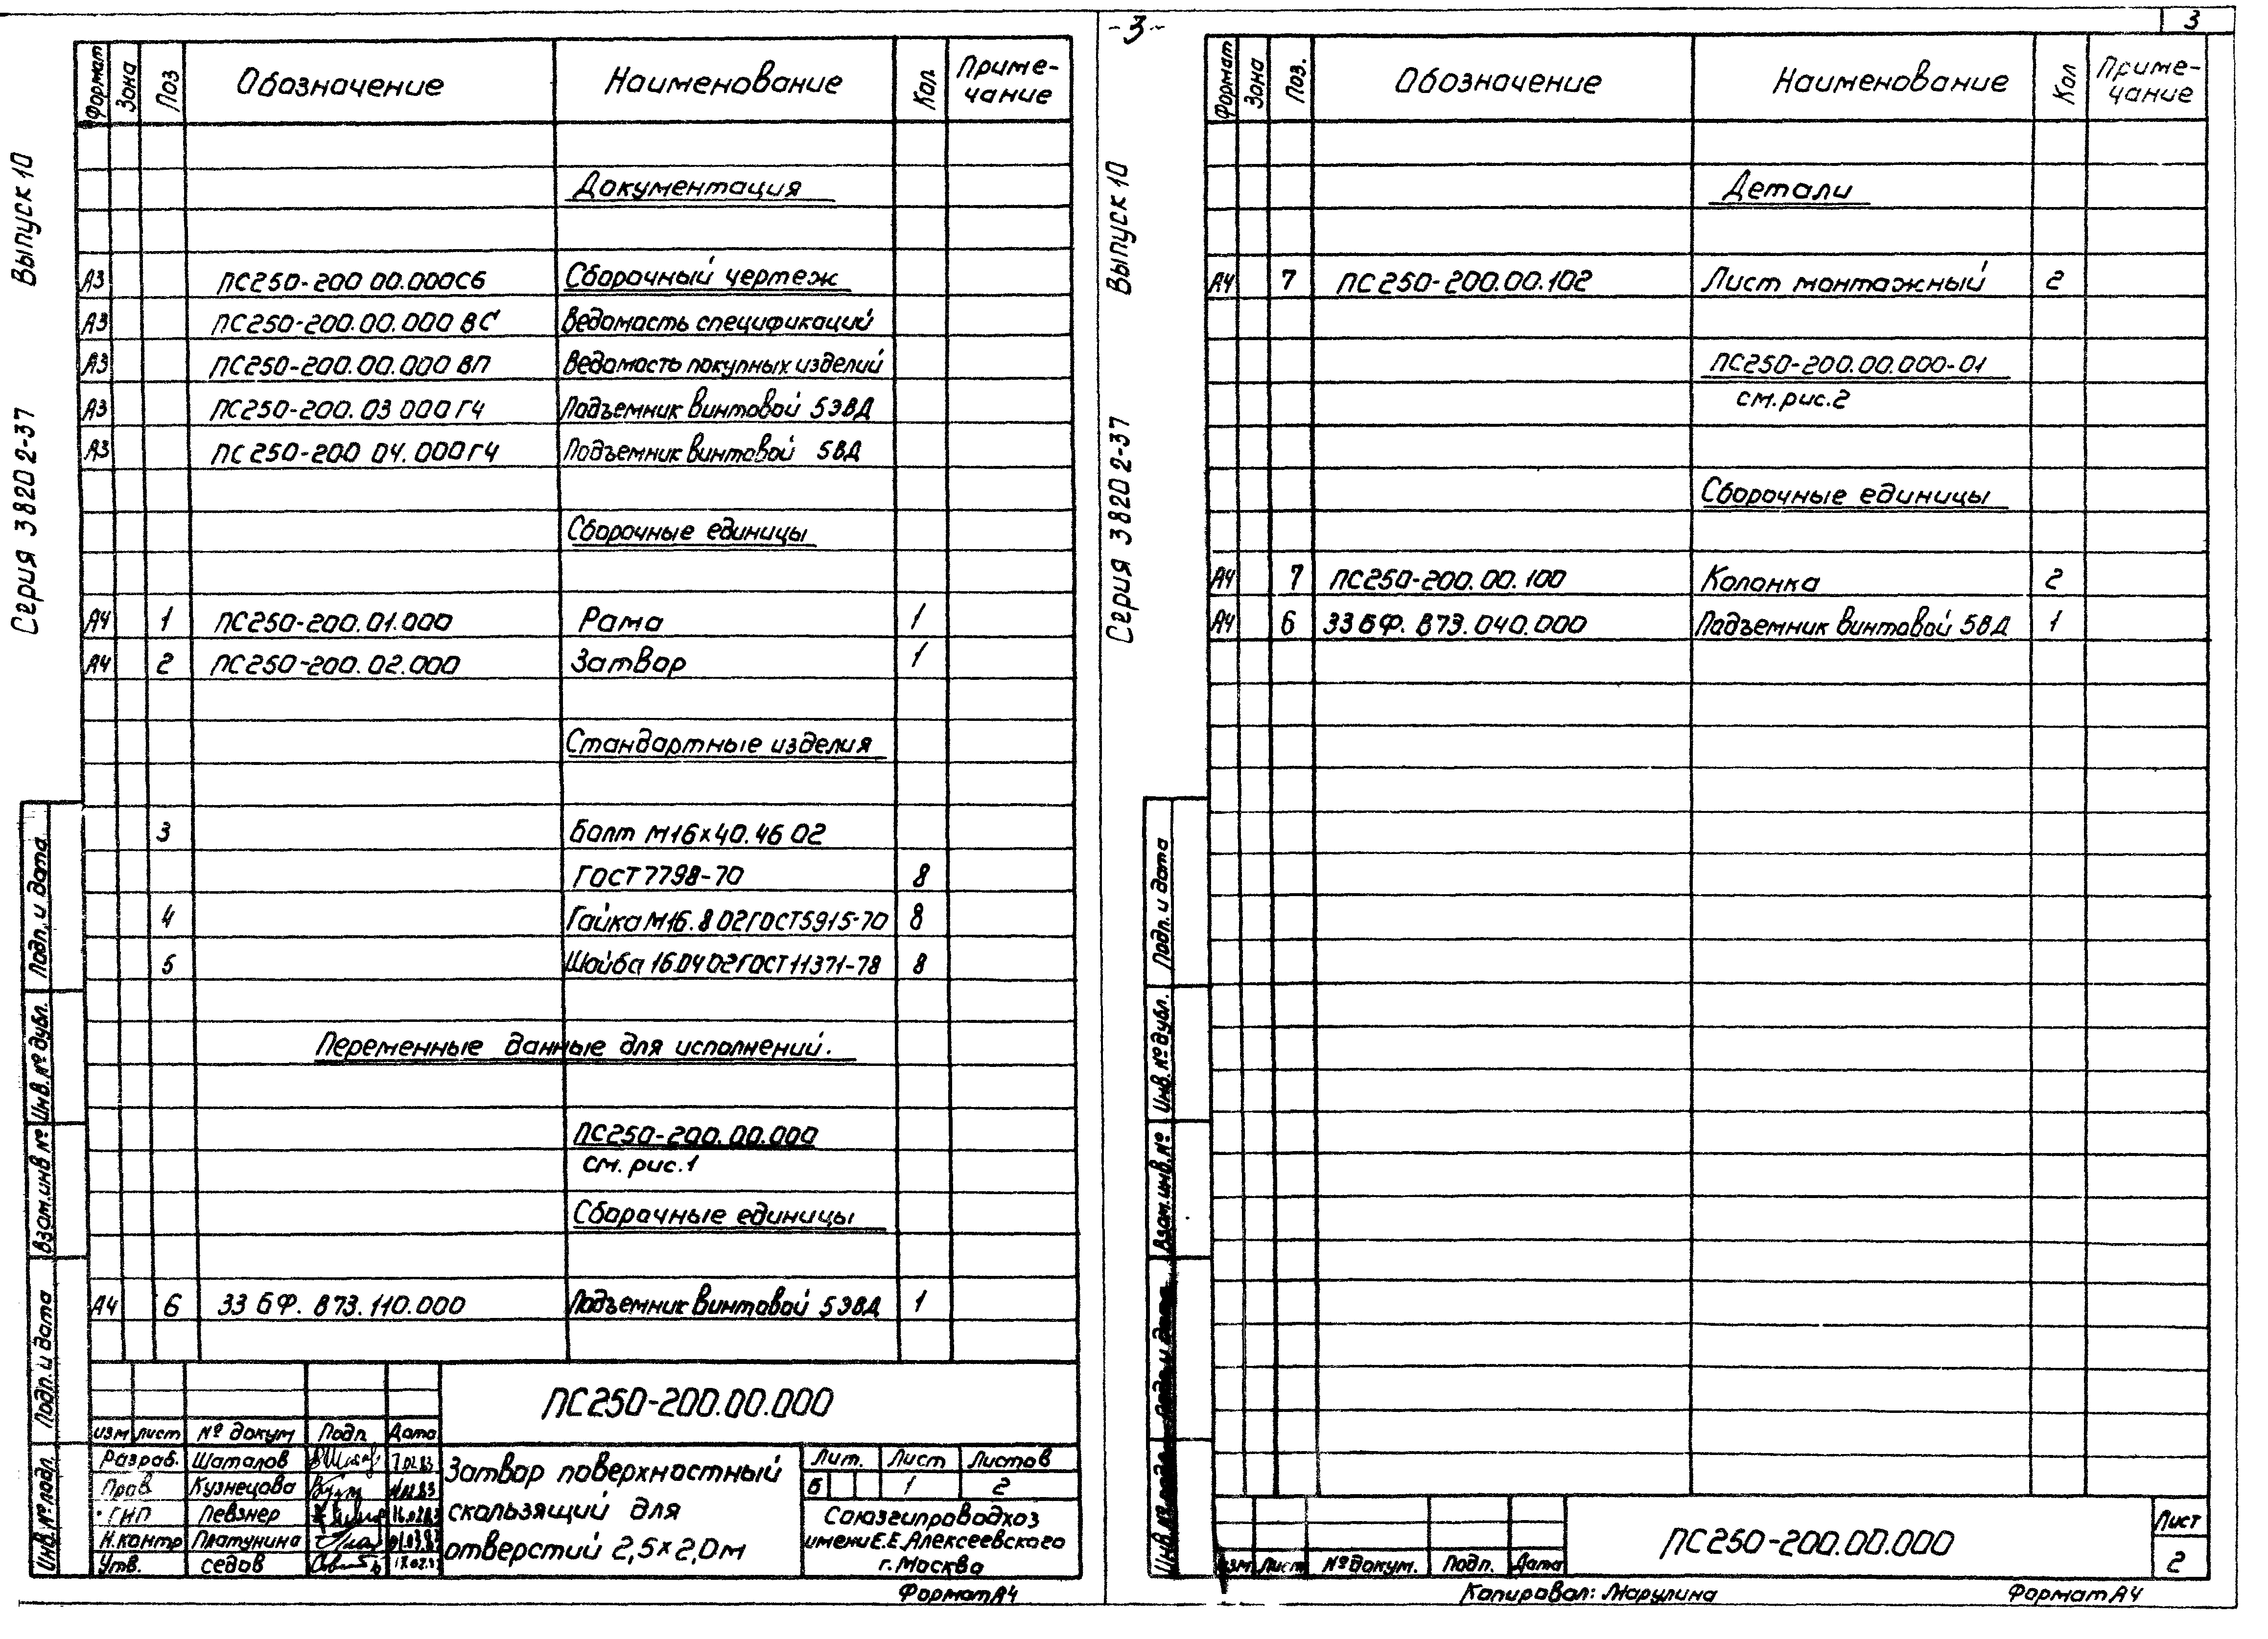 -3-
3
Серия 3820 2-37 Выпуск 10
Формат Зона Поз Обозначение Наименование Кол Приме-
чание
Документация
А3 ПС250-200 00.000СБ Сборочный чертеж
А3 ПС250-200.00.000 ВС Ведомость спецификаций
А3 ПС250-200.00.000 ВП Ведомость покупных изделий
А3 ПС250-200.03 000ГЧ Подъемник винтовой 5ЭВД
А3 ПС250-200 04.000ГЧ Подъемник винтовой 5ВД
Сборочные единицы
А4 1 ПС250-200.01.000 Рама 1
А4 2 ПС250-200.02.000 Затвор 1
Стандартные изделия
3 Болт М16х40.46 02
ГОСТ 7798-70 8
4 Гайка М16.8 02 ГОСТ 5915-70 8
5 Шайба 16.04 02 ГОСТ 11371-78 8
Переменные данные для исполнений.
ПС250-200.00.000
см. рис.1
Сборочные единицы
А4 6 33 БФ. 873.110.000 Подъемник винтовой 5ЭВД 1
Инв.№подл. Подп. и дата Взам.инв № Инв.№дубл. Подп. и дата
ПС250-200.00.000
изм лист № докум Подп Дата
Разраб. Шаталов 7.02.83
Пров Кузнецова
ГИП Певзнер
Н.контр Платунина
Утв. седов
Затвор поверхностный
скользящий для
отверстий 2,5×2,0м
Лит. Лист Листов
Б 1 2
Союзгипроводхоз
имени Е.Е.Алексеевского
г.Москва
Формат А4
Серия 3820 2-37 Выпуск 10
Формат Зона Поз. Обозначение Наименование Кол Приме-
чание
Детали
А4 7 ПС250-200.00.102 Лист монтажный 2
ПС250-200.00.000-01
см.рис.2
Сборочные единицы
А4 7 ПС250-200.00.100 Колонка 2
А4 6 33 БФ. 873.040.000 Подъемник винтовой 5ВД 1
Инв.№ подл. Подп. и дата Взам.инв.№ Инв.№дубл. Подп. и дата
изм Лист №докум. Подп. Дата
ПС250-200.00.000
Лист
2
Копировал: Марулина
Формат А4